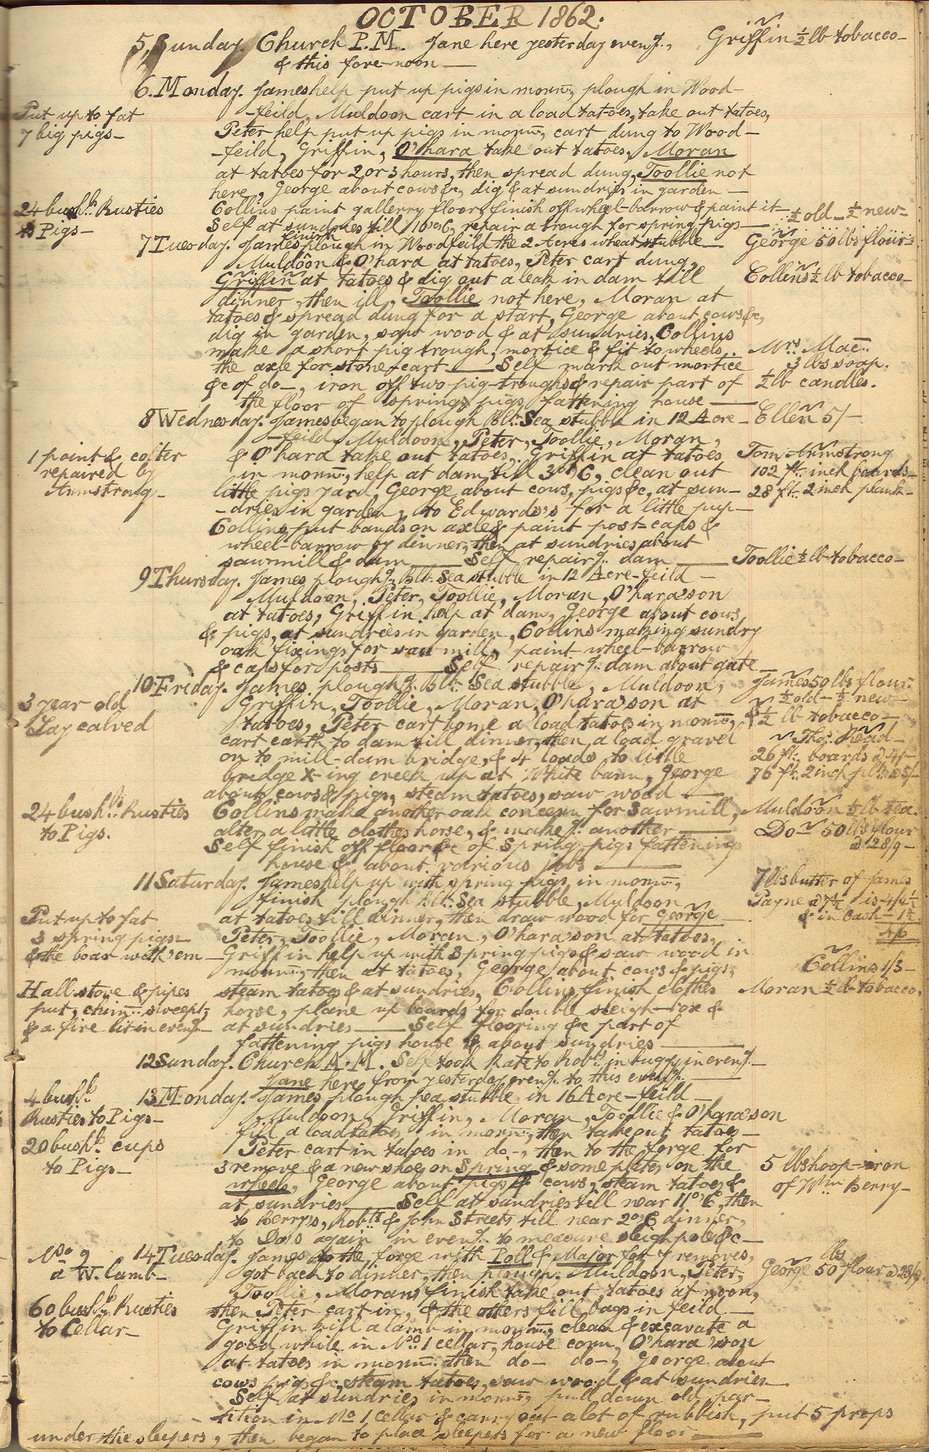 OCTOBER 1862.
5. Sunday. Church P.M. Jane here yesterday eveng., Griffin ½ lb tobacco—
& this fore-noon—
6. Monday. James help put up pigs in mornng, plough in Wood-
Put up to fat -feild, Muldoon cart in a load tatoes, take out tatoes,
7 big pigs— Peter help put up pigs in mornng, cart dung to Wood-
-feild, Griffin, O'hara take out tatoes, Moran
at tatoes for 2 or 3 hours, then spread dung, Toollie not
here, George about cows &c, dig & at sundries in garden—
24 bushls. Rusties Collins paint gallerry floor, finish off wheel-barrow & paint it—
to Pigs— Self at sundries till 10 o'C, repair a trough for spring pigs— ½ old—½ new—
7 Tuesday. James plough in Woodfeild the 2 Acres wheat stubble— George 50 lbs flour
Muldoon & O'hara at tatoes, Peter cart dung,
Griffin at tatoes & dig out a leak in dam till Collins ½ lb tobacco
dinner, then ill, Toollie not here, Moran at
tatoes & spread dung for a start, George about cows &c,
dig in garden, saw wood & at sundries, Collins
make a short pig trough, mortice & fit to wheels Mrs. Mac..
the axle for stone-cart — Self mark out mortice 3 lbs soap.
&c of do—, iron off two pig-troughs & repair part of ½ lb candles.
the floor of springs pigs fattening house—
8 Wednesday. James began to plough Blk. Sea stubble in 12 Acre- Ellen 5/-
-feild Muldoon, Peter, Toollie, Moran,
1 point & colter & O'hara take out tatoes, Griffin at tatoes Tom Armstrong
repaired by in mornng, help at dam till 3 o'C, clean out 102 ft. inch boards—
Armstrong— little pigs yard, George about cows, pigs &c, at sun- 28 ft. 2 inch plank—
-dries in garden, to Edwards's for a little pup—
Collins put bands on axle & paint post-caps &
wheel-barrow by dinner, then at sundries about
sawmill & dam — Self repairg. dam — Toollie ½ lb tobacco—
9 Thursday. James ploughg. Blk. Sea stubble in 12 Acre-feild—
Muldoon, Peter, Toollie, Moran, O'hara's son
at tatoes, Griffin help at dam, George about cows
& pigs, at sundries in garden, Collins making sundry
oak fixings for saw mill, paint wheel-barrow
& caps for posts — Self repairg. dam about gate—
10 Friday. James ploughg. Blk. Sea stubble, Muldoon, James 50 lbs flour
3 year old Griffin, Toollie, Moran, O'hara's son at ½ old—½ new—
Clay calved tatoes, Peter cart home a load tatoes in mornng, & ½ lb tobacco—
cart earth to dam till dinner, then a load gravel Thos. Head—
on to mill-dam bridge, & 4 loads to little 26 ft. boards
bridge X-ing creek up at White barn, George 76 ft. 2 inch
about cows & pigs, steam tatoes, saw wood—
24 bushls. Rusties Collins make another oak concern for Sawmill, Muldoon ½ lb tea.
to Pigs. alter a little clothes horse, & makeg. another— Do— 50 lbs flour
Self finish off floor &c of Spring pigs fattening @ 28/9—
house & about various jobs—
11 Saturday. James help up with spring pigs in mornng, 7 lbs butter of James
finish plough Blk. Sea stubble, Muldoon Payne @ 7½ is 4/4½
Put up to fat at tatoes till dinner, then draw wood for George— & in Cash—1½
3 spring pigs Peter, Toollie, Moran, O'hara's son at tatoes, 4/6
& the boar with 'em— Griffin help up with Spring pigs & saw wood in
mornng, then at tatoes, George about cows & pigs, Collins 1/3—
Hall stove & pipes steam tatoes & at sundries, Collins finish clothes Moran ½ lb tobacco.
put, chimn: swept, horse, plane up boards for double sleigh-box &
& a fire lit in eveng— at sundries — Self flooring &c part of
fattening pigs house & about sundries—
12 Sunday. Church A.M. Self took Kate to Robt. in buggy in eveng.—
Jane here from yesterday eveng. to this eveng.
4 bushls. 13 Monday. James plough pea stubble in 16 Acre-feild—
Rusties to Pigs— Muldoon, Griffin, Moran, Toollie & O'hara's son
fill a load tatoes in mornng, then take out tatoes—
20 bushls. cups Peter cart in tatoes in do—, then to the forge for
to Pigs— 3 remove & a new shoe on Spring & some plates on the 5 lbs hoop-iron
wheels, George about pigs & cows, steam tatoes & of Wm. Berry—
at sundries — Self at sundries till near 11 o'C, then
to Berry's, Robt's & John Streets till near 2 o'C, dinner,
to Do's again in eveng. to measure sleigh pole &c—
No. 9 14 Tuesday. James to the forge with Poll & Major for 7 removes, lbs
a W. lamb— got back to dinner, then plough. Muldoon, Peter, George 50 flour @ 28/9
Toollie, Moran finish take out tatoes at noon,
60 bushls. Rusties then Peter cart in, & the others fill bags in feild—
to Cellar— Griffin kill a lamb in mornng, clean & excavate a
good while in No. 1 cellar, house corn, O'hara's son
at tatoes in mornng, then do— do—, George about
cows pigs &c, steam tatoes, saw wood & at sundries—
Self at sundries in mornng, pull down old par-
tition in No. 1 cellar & carry out a lot of rubbish, put 5 props
under the sleepers, then began to place sleepers for a new floor—